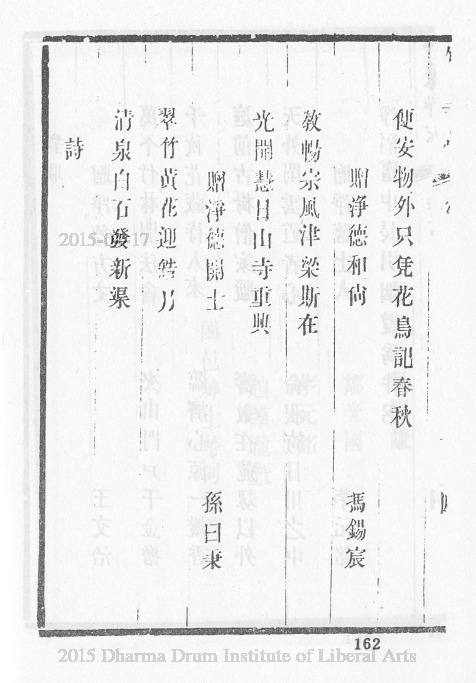 便安物外只凭花鳥記春秋
贈淨德和尙 馮錫宸
敎暢宗風津梁斯在
光開慧日山寺重興
贈淨德開士 孫曰秉
翠竹黃花迎皓月
清泉白石發新渠
詩
162
2015-03-17
2015 Dharma Drum Institute of Liberal Arts